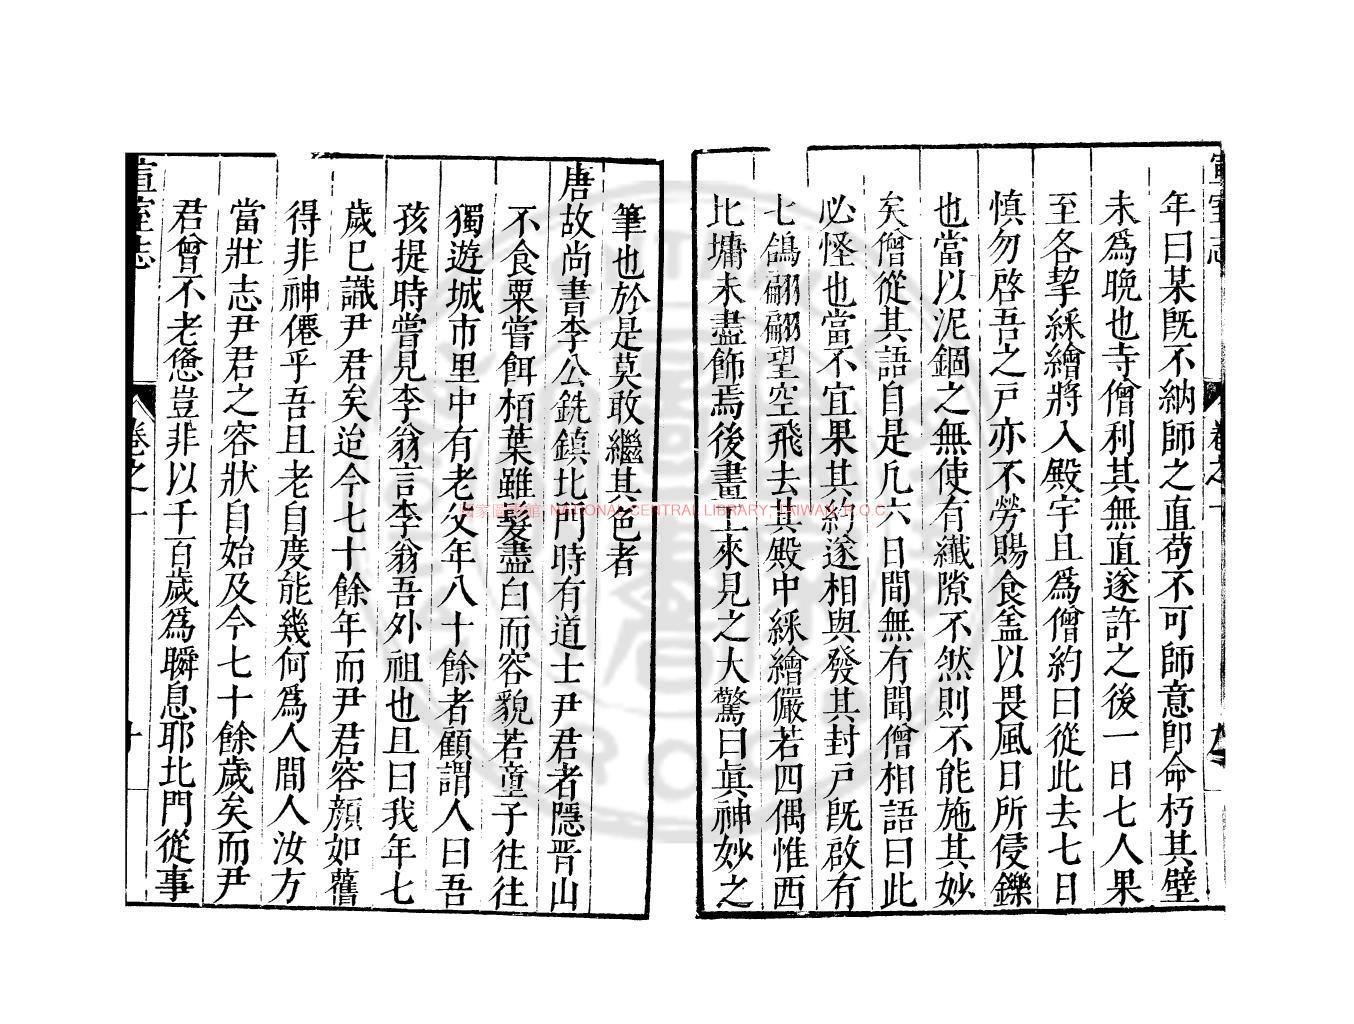 年曰某旣不納師之直苟不可師意卽命朽其壁
未爲晩也寺僧利其無直遂許之後一日七人果
至各挈綵繪將入殿宇且爲僧約曰從此去七日
慎勿啓吾之戸亦不勞賜食盖以畏風日所侵鑠
也當以泥錮之無使有纖隙不然則不能施其妙
矣僧從其語自是凡六日間無有聞僧相語曰此
必怪也當不宜果其約遂相與發其封戸旣啟有
七鴿翩翩望空飛去其殿中綵繪儼若四偶惟西
北墉未盡飾焉後畫工來見之大驚曰眞神妙之
筆也於是莫敢繼其色者
唐故尚書李公銑鎮北門時有道士尹君者隱晋山
不食粟嘗餌栢葉雖髮盡白而容貌若童子往往
獨遊城市里中有老父年八十餘者顧謂人曰吾
孩提時嘗見李翁言李翁吾外祖也且曰我年七
歲巳識尹君矣迨今七十餘年而尹君容顔如舊
得非神僊乎吾且老自度能幾何爲人間人汝方
當壯志尹君之容狀自始及今七十餘歲矣而尹
君曾不老憊豈非以千百歲爲瞬息耶北門從事
宣室志
卷之一
十
國家圖書館 NATIONAL CENTRAL LIBRARY, TAIWAN, R.O.C